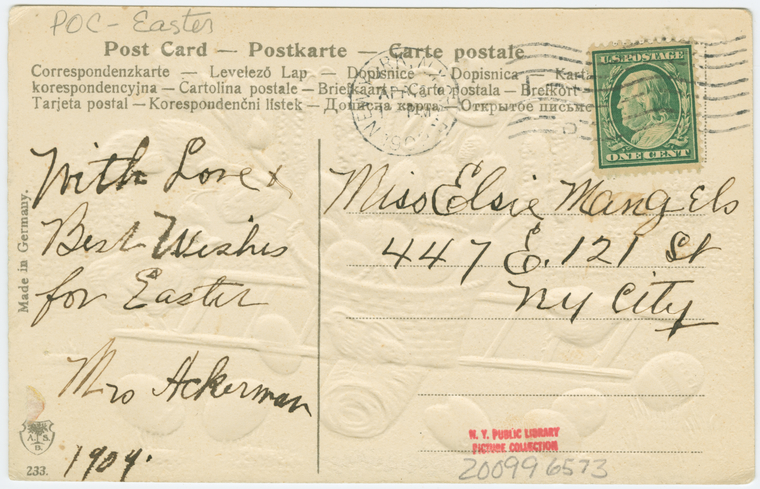 POC - Easter
Post Card — Postkarte — Carte postale
Correspondenzkarte — Levelező Lap — Dopisnice — Dopisnica — Karta
korespondencyjna — Cartolina postale — Briefkaart — Carte postala — Brefkort —
Tarjeta postal — Korespondenční listek — Дописна карта — Открытое письмо
NEW YORK, N.Y.
APR
U.S. POSTAGE
ONE CENT
With Love &
Best Wishes
for Easter
Mrs Ackerman
1909.
Miss Elsie Mangels
447 E. 121 St
NY City
Made in Germany.
A. S.
B.
233.
N. Y. PUBLIC LIBRARY
PICTURE COLLECTION
200996573